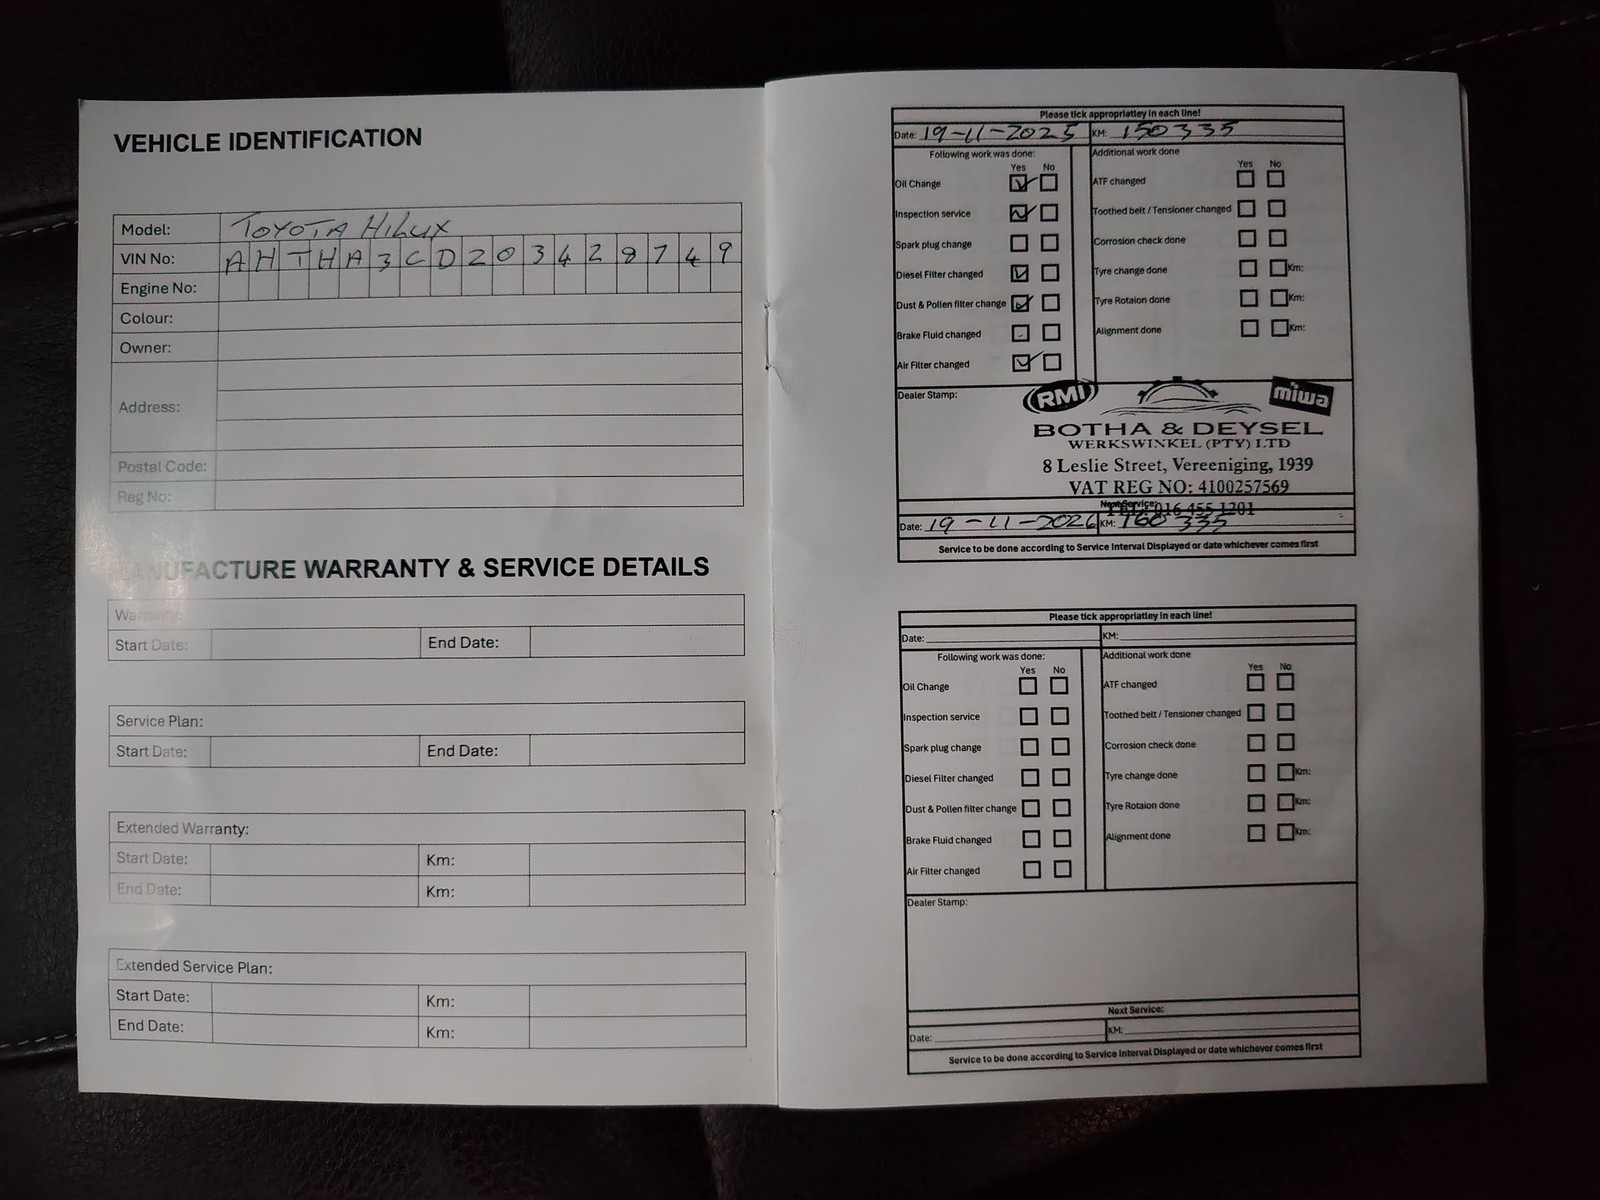 VEHICLE IDENTIFICATION
Model: TOYOTA HILUX
VIN No: A H T H A 3 C D 2 0 3 4 2 8 7 4 9
Engine No:
Colour:
Owner:
Address:
Postal Code:
Reg No:
MANUFACTURE WARRANTY & SERVICE DETAILS
Warranty:
Start Date: End Date:
Service Plan:
Start Date: End Date:
Extended Warranty:
Start Date: Km:
End Date: Km:
Extended Service Plan:
Start Date: Km:
End Date: Km:
Please tick appropriatley in each line!
Date: 19-11-2025 KM: 150335
Following work was done: Additional work done
Yes No Yes No
Oil Change ATF changed
Inspection service Toothed belt / Tensioner changed
Spark plug change Corrosion check done
Diesel Filter changed Tyre change done Km:
Dust & Pollen filter change Tyre Rotaion done Km:
Brake Fluid changed Alignment done Km:
Air Filter changed
Dealer Stamp: RMI miwa
BOTHA & DEYSEL
WERKSWINKEL (PTY) LTD
8 Leslie Street, Vereeniging, 1939
VAT REG NO: 4100257569
Next Service:
TEL: 016 455 1201
Date: 19-11-2026 KM: 160335
Service to be done according to Service Interval Displayed or date whichever comes first
Please tick appropriatley in each line!
Date: KM:
Following work was done: Additional work done
Yes No Yes No
Oil Change ATF changed
Inspection service Toothed belt / Tensioner changed
Spark plug change Corrosion check done
Diesel Filter changed Tyre change done Km:
Dust & Pollen filter change Tyre Rotaion done Km:
Brake Fluid changed Alignment done Km:
Air Filter changed
Dealer Stamp:
Next Service:
Date: KM:
Service to be done according to Service Interval Displayed or date whichever comes first